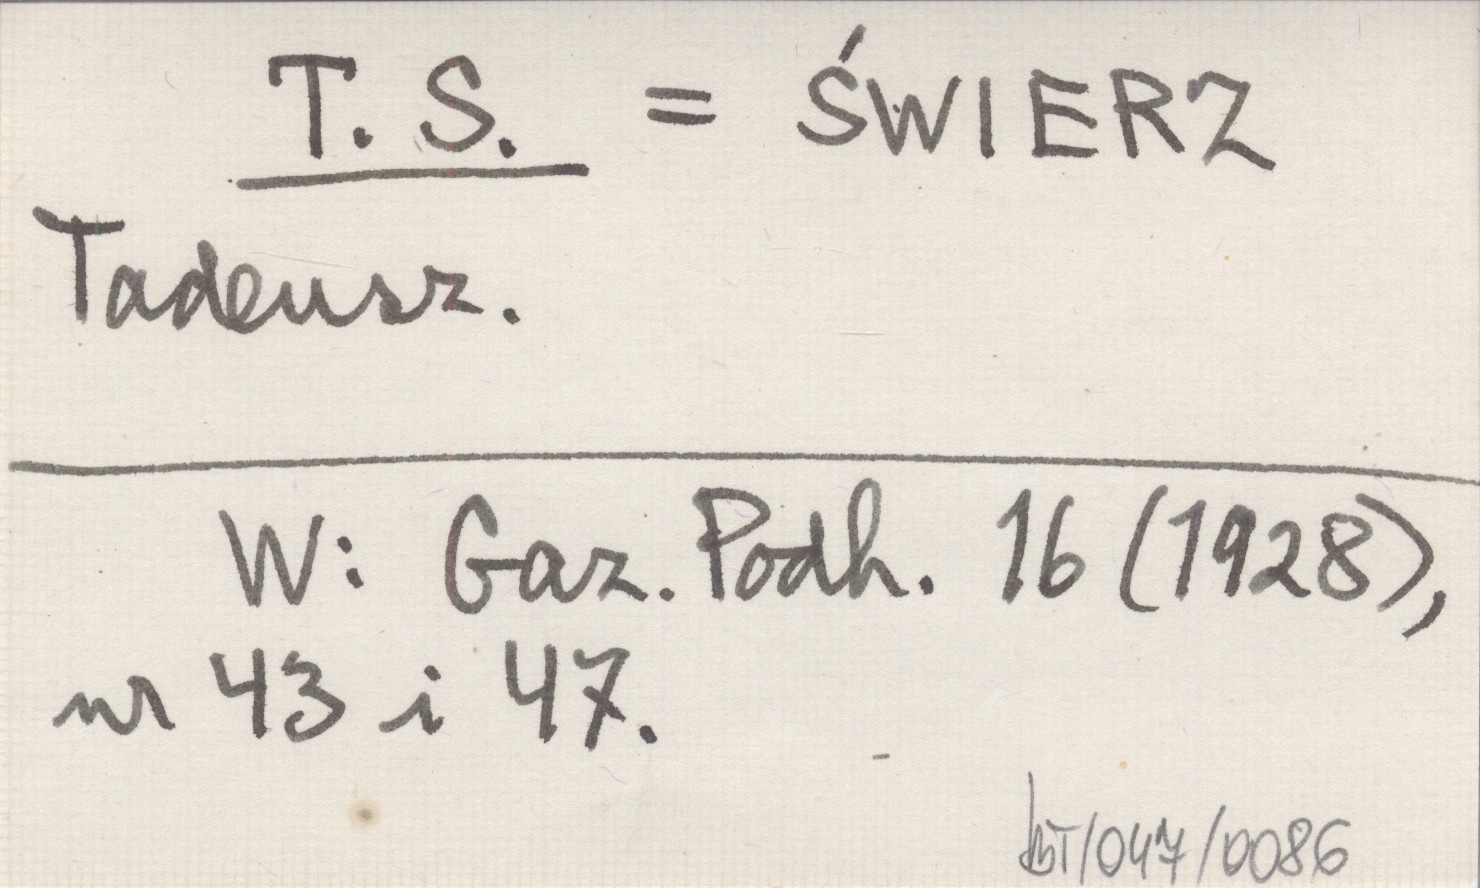 T. S. = ŚWIERZ
Tadeusz.
W: Gaz. Podh. 16 (1928),
nr 43 i 47.
/047/0086